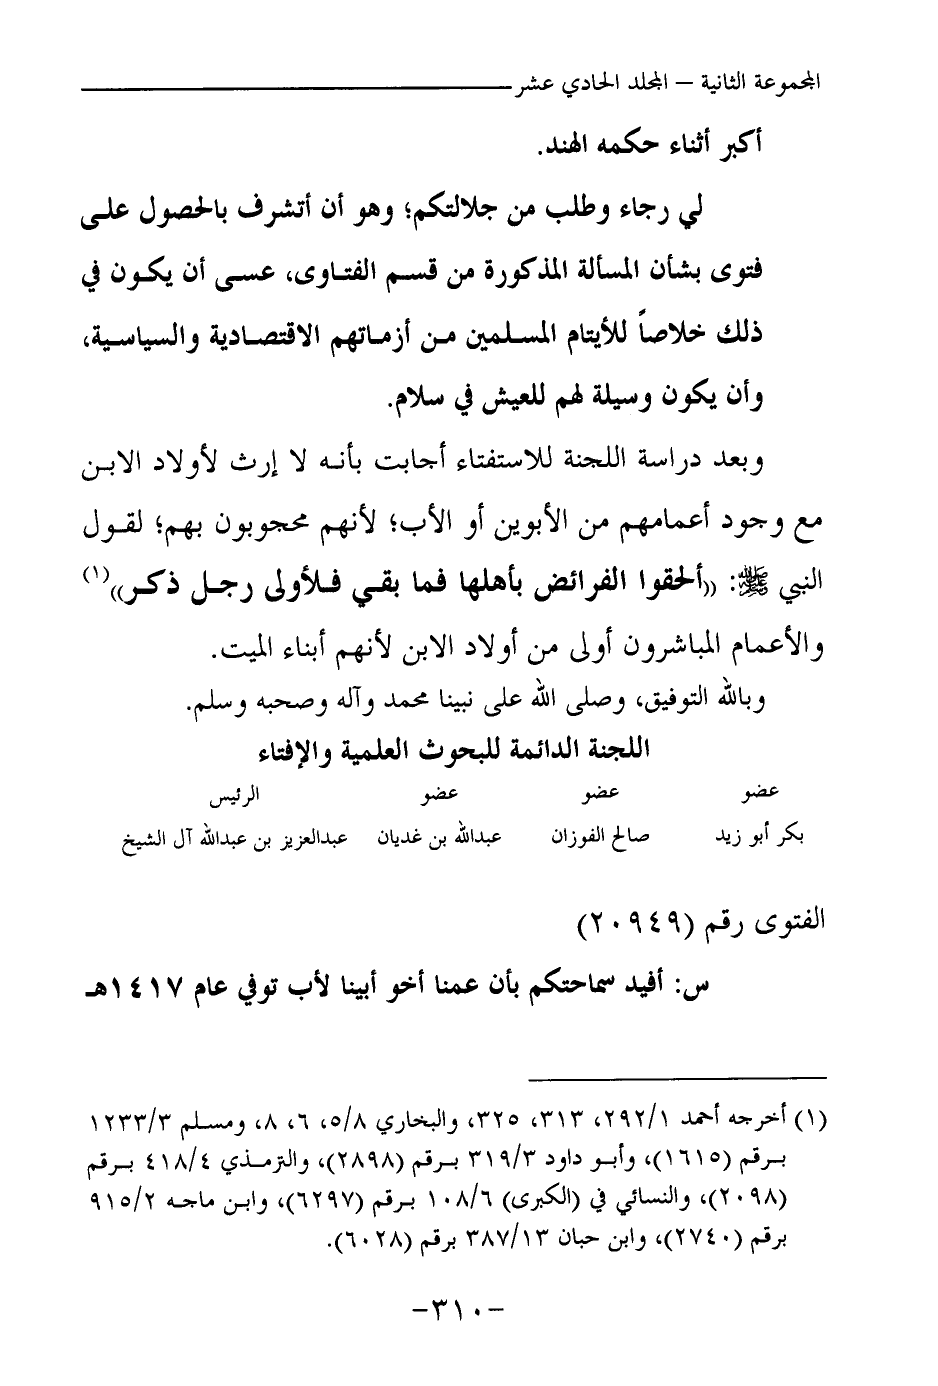 المجموعة الثانية – المجلد الحادي عشر
أكبر أثناء حكمه الهند.
لي رجاء وطلب من جلالتكم؛ وهو أن أتشرف بالحصول على
فتوى بشأن المسألة المذكورة من قسم الفتاوى، عسى أن يكون في
ذلك خلاصاً للأيتام المسلمين من أزماتهم الاقتصادية والسياسية،
وأن يكون وسيلة لهم للعيش في سلام.
وبعد دراسة اللجنة للاستفتاء أجابت بأنه لا إرث لأولاد الابن
مع وجود أعمامهم من الأبوين أو الأب؛ لأنهم محجوبون بهم؛ لقول
النبي ﷺ: «ألحقوا الفرائض بأهلها فما بقي فلأولى رجل ذكر»(١)
والأعمام المباشرون أولى من أولاد الابن لأنهم أبناء الميت.
وبالله التوفيق، وصلى الله على نبينا محمد وآله وصحبه وسلم.
اللجنة الدائمة للبحوث العلمية والإفتاء
عضو عضو عضو الرئيس
بكر أبو زيد صالح الفوزان عبدالله بن غديان عبدالعزيز بن عبدالله آل الشيخ
الفتوى رقم (٢٠٩٤٩)
س: أفيد سماحتكم بأن عمنا أخو أبينا لأب توفي عام ١٤١٧هـ
(١) أخرجه أحمد ٢٩٢/١، ٣١٣، ٣٢٥، والبخاري ٥/٨، ٦، ٨، ومسلم ١٢٣٣/٣
برقم (١٦١٥)، وأبو داود ٣١٩/٣ برقم (٢٨٩٨)، والترمذي ٤١٨/٤ برقم
(٢٠٩٨)، والنسائي في (الكبرى) ١٠٨/٦ برقم (٦٢٩٧)، وابن ماجه ٩١٥/٢
برقم (٢٧٤٠)، وابن حبان ٣٨٧/١٣ برقم (٦٠٢٨).
-٣١٠-